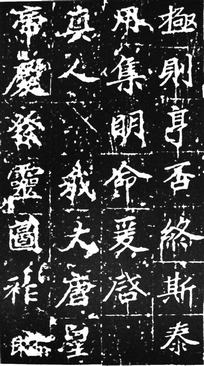 極則亨否終斯泰
用集明命爰啓
真人我大唐皇
帝慶發靈圖祚